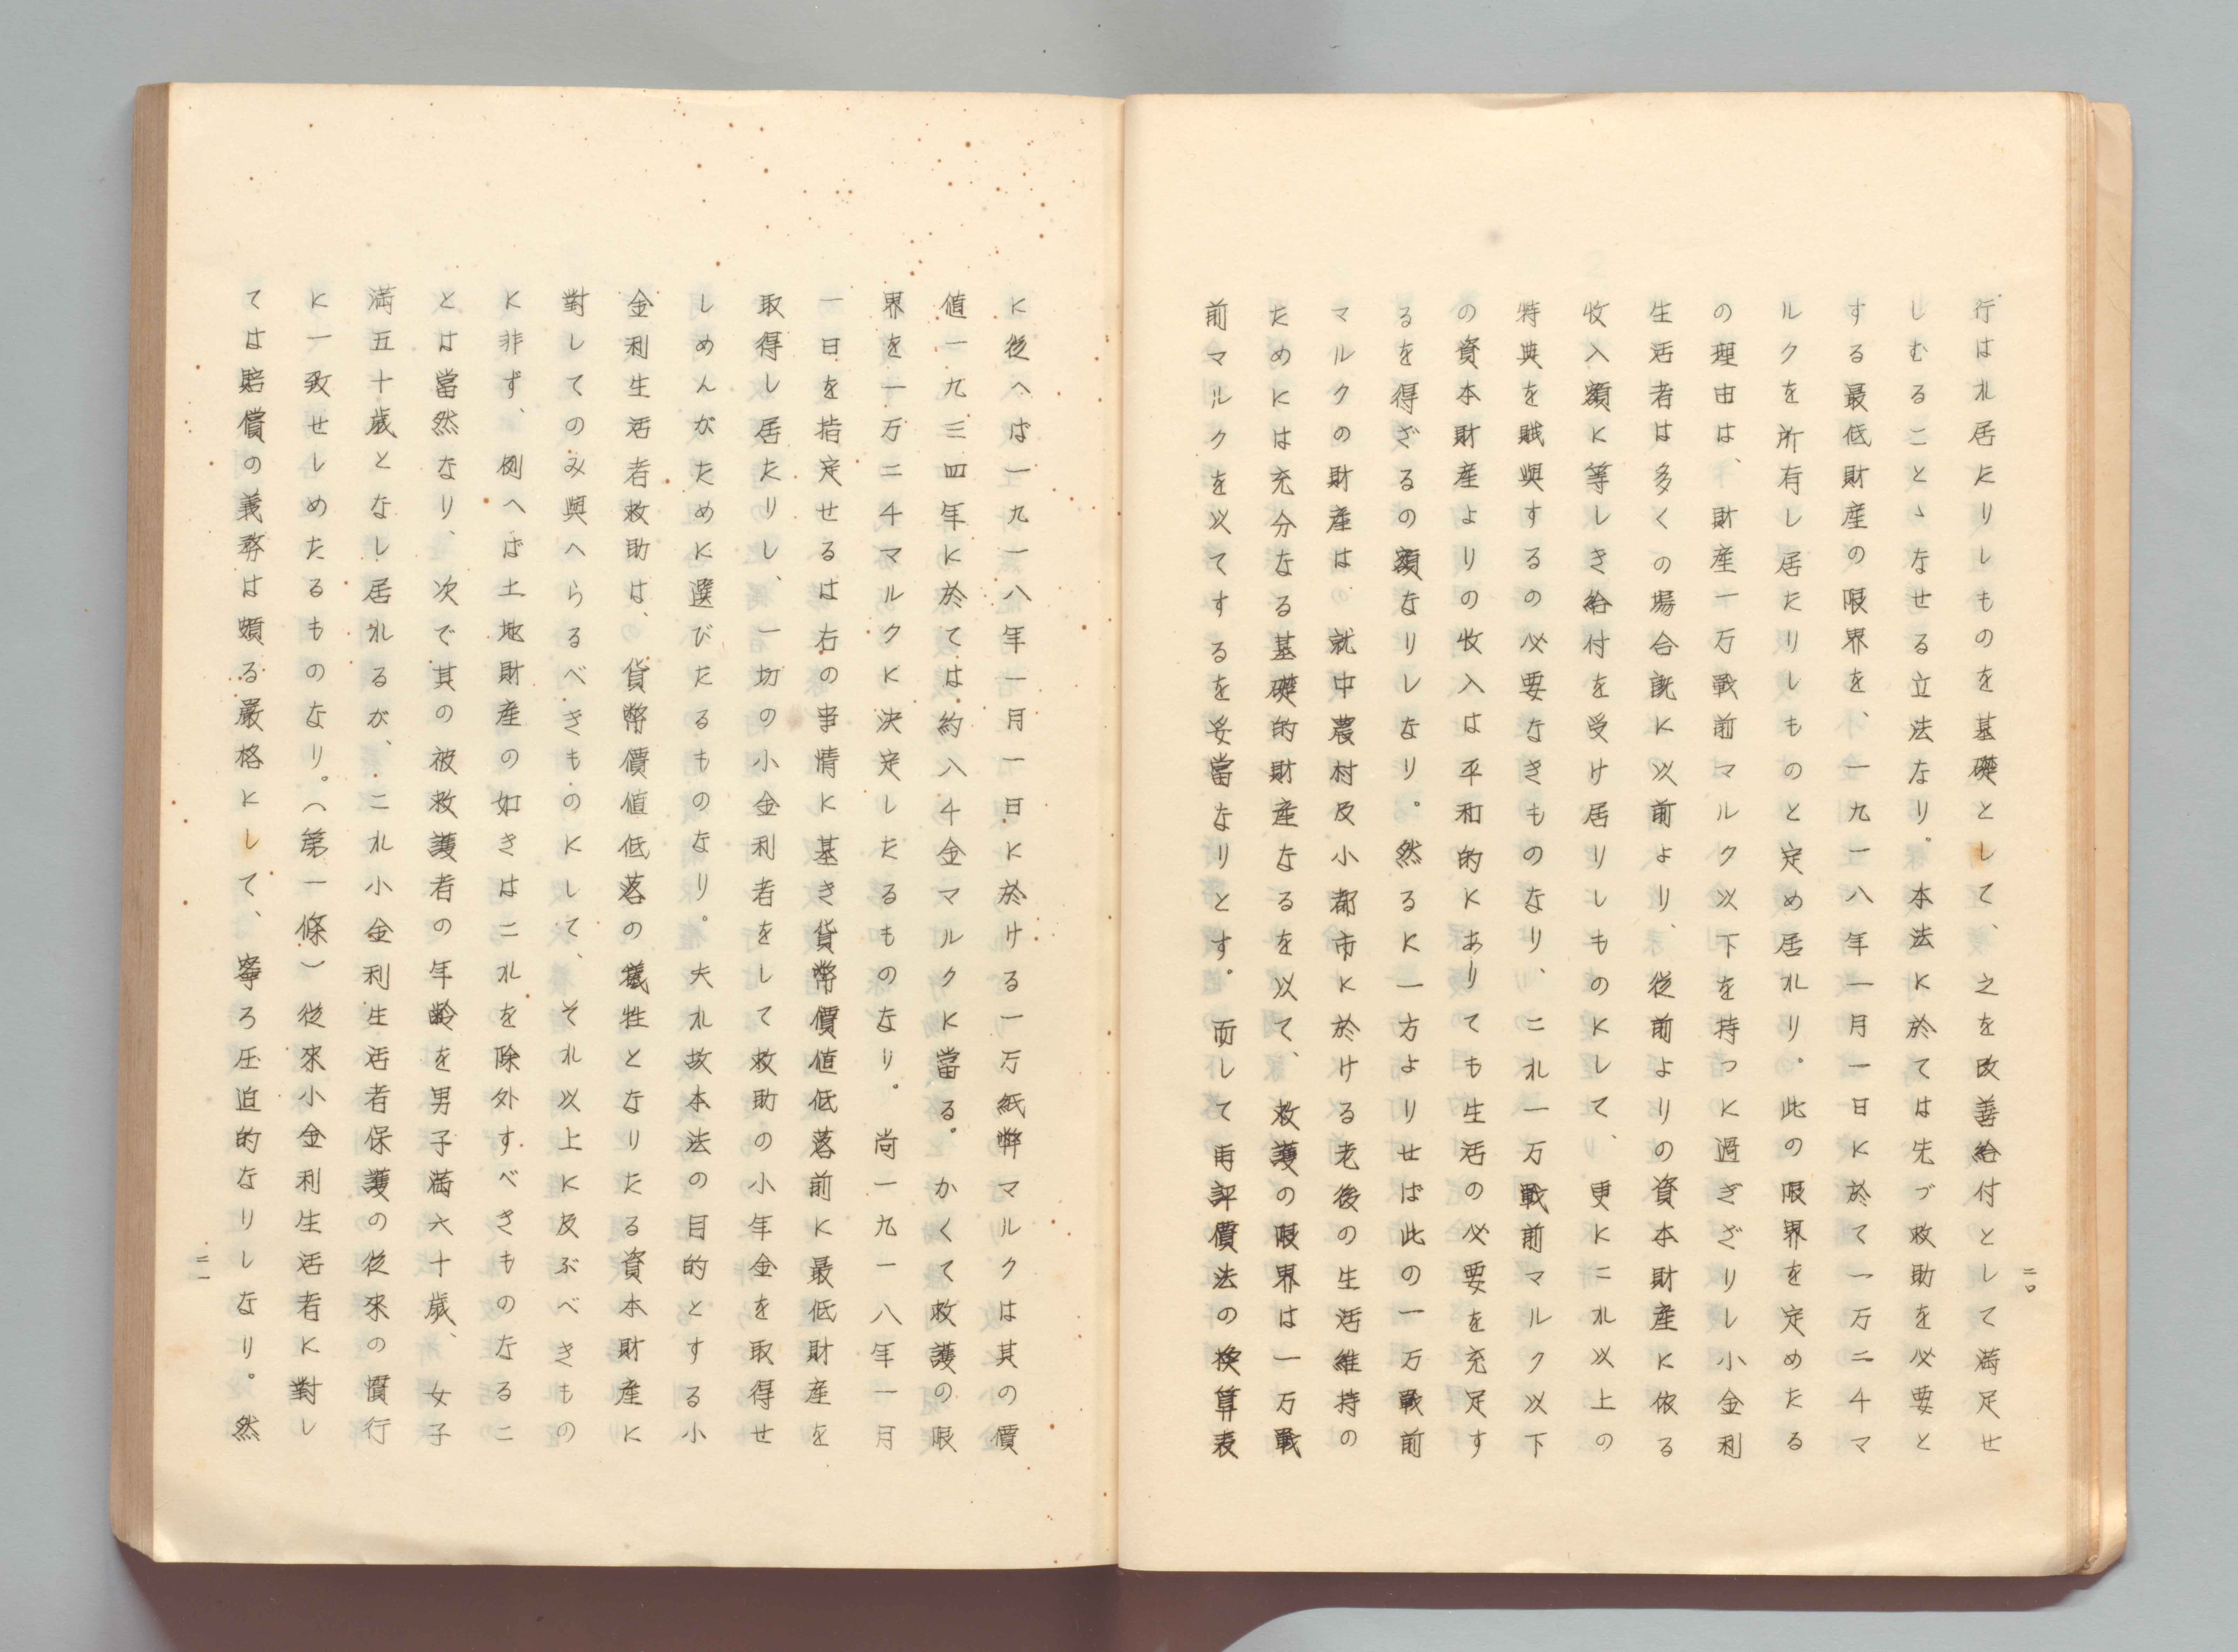 行はれ居たりしものを基礎として、之を改善給付として満足せ
しむること、なせる立法なり。本法に於ては先づ救助を必要と
する最低財産の限界を、一九一八年一月一日に於て一万二千マ
ルクを所有し居たりしものと定め居れり。此の限界を定めたる
の理由は、財産一万戰前マルク以下を持つに過ぎざりし小金利
生活者は多くの場合既に以前より、從前よりの資本財産に依る
收入額に等しき給付を受け居りしものにして、更にこれ以上の
特典を賦與するの必要なきものなり、これ一万戰前マルク以下
の資本財産よりの收入は平和的にありても生活の必要を充足す
るを得ざるの額なりしなり。然るに一方よりせば此の一万戰前
マルクの財産は、就中農村及小都市に於ける老後の生活維持の
ためには充分なる基礎的財産なるを以て、救護の限界は一万戰
前マルクを以てするを妥當なりとす。而して再評價法の換算表
二〇
に從へば一九一八年一月一日に於ける一万紙弊マルクは其の價
値一九三四年に於ては約八千金マルクに當る。かくて救護の限
界を一万二千マルクに決定したるものなり。尚一九一八年一月
一日を指定せるは右の事情に基き貨幣價値低落前に最低財産を
取得し居たりし、一切の小金利者をして救助の小年金を取得せ
しめんがために選びたるものなり。夫れ故本法の目的とする小
金利生活者救助は、貨幣價値低落の犠牲となりたる資本財産に
對してのみ與へらるべきものにして、それ以上に及ぶべきもの
に非ず、例へば土地財産の如きはこれを除外すべきものなるこ
とは當然なり、次で其の被救護者の年齢を男子満六十歳、女子
満五十歳となし居れるが、これ小金利生活者保護の從來の慣行
に一致せしめたるものなり。（第一條）從來小金利生活者に對し
ては賠償の義務は頗る嚴格にして、寧ろ圧迫的なりしなり。然
二一